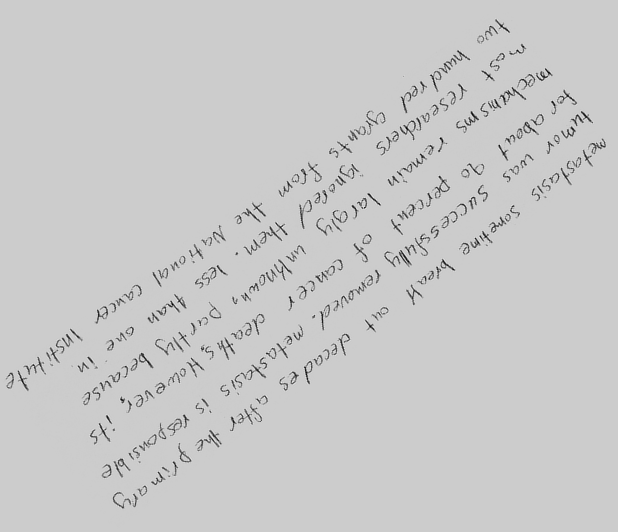 metastasis sometime break out decades after the primary
tumor was successfully removed. metastasis is responsible
for about 90 percent of cancer deaths, However, its
mechanisms remain largly unknown, partly because
most researchers ignored them. less than one in
two hundred grants from the National cancer Institute